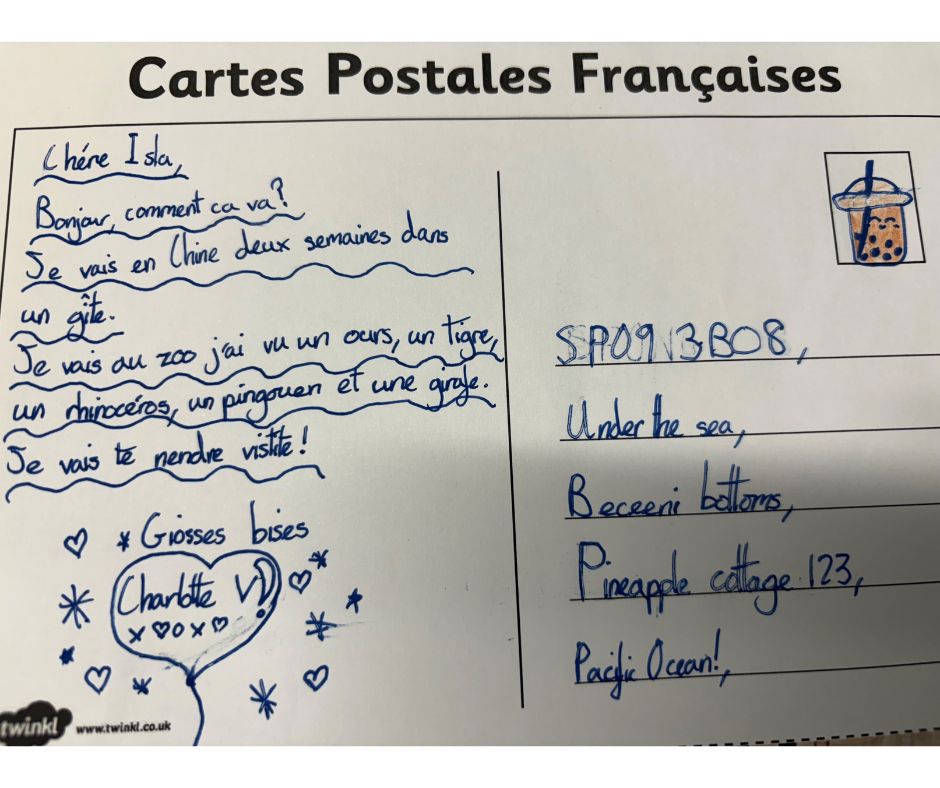 Cartes Postales Françaises
Chére Isla,
Bonjour, comment ca va?
Je vais en Chine deux semaines dans
un gîte.
Je vais au zoo j'ai vu un ours, un tigre,
un rhinocéros, un pingouen et une girafe.
Je vais te rendre visitite!
Giosses bises
Charlotte V
x o x
SP09 13BO8,
Under the sea,
Beceeni bottoms,
Pineapple cottage 123,
Pacific Ocean!,
twinkl www.twinkl.co.uk